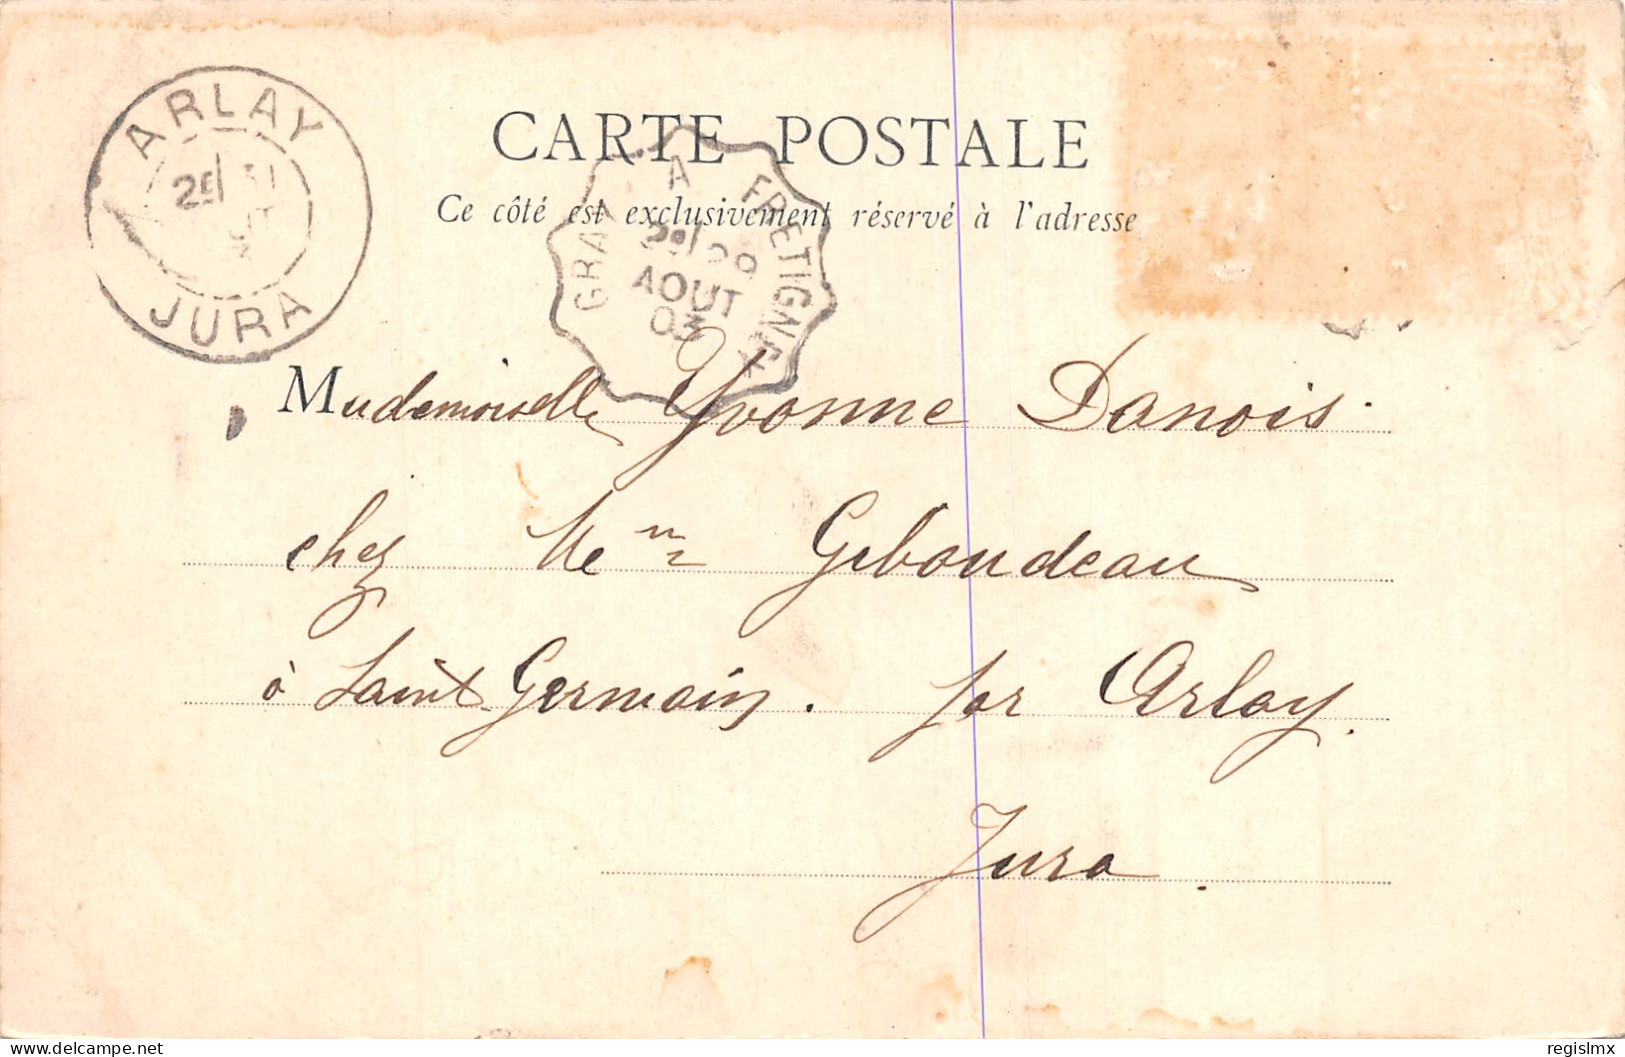 CARTE POSTALE
Ce côté est exclusivement réservé à l'adresse
ARLAY
2E 31
JURA
GRAY A FRETIGNEY
2E 29
AOUT
03
Mademoiselle Yvonne Danois
chez Mme Geboudeau
à Saint Germain. par Arlay.
Jura.
delcampe.net
regislmx